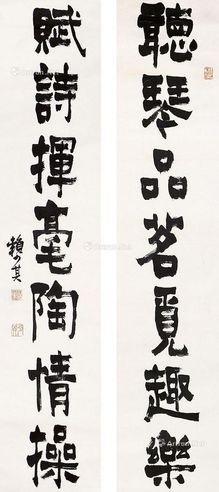 聽琴品茗覓趣樂
賦詩揮毫陶情操
賴少其